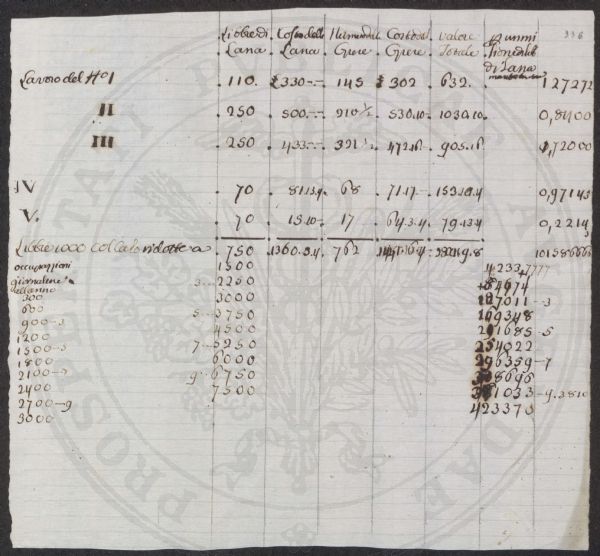 336
Libre di Costo della Numero delle Costo delle Valore
Lana Lana Opere Opere Totale di Lana
Lavoro del No I 110. £330-- 145 £302 632. 127272
II 250 500.-- 210 1/2 530.10- 1030.10 0,8400
III 250 433-- 321 1/2 472.16 905.16 1,72000
IV 70 81.13.4 68 71.17- 153.10.4 0,97143
V. 70 15.10- 17 64.3.4 79.13.4 0,2214
Libre 1000 750 1360.3.4 762
occupazioni 1500 42337,777
giornaliere 3... 2250 84674
all'anno
300 3000 127011-3
600 5...3750 169348
900-3 4500 211685-5
1200 7...5250 254022
1500-5 6000 296359-7
1800 9...6750 338696
2100-7 7500 381033-9.3810
2400 423370
2700-9
3000
PROSPERITATI PUBLICAE AUGENDAE